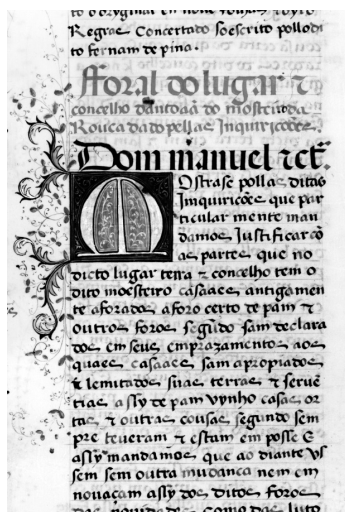 to o oryginal em nove folhas
Regras Concertado soescrito pollo dito
to fernam de pina.
fforal do lugar τ
concelho d antoãa do mosteiro da
Rouca dado pellas Inquiriçoões.
Dom manuel τct.
MOstrase pollas ditas
Imquiriçoes que par
ticular mente man
damos Justificar cõ
as partes que no
dicto lugar terra τ concelho tem o
dito moesteiro casaaes antigamen
te aforados a foro certo de pam τ
outros foros segũdo sam declara
dos em seus emprazamentos aos
quaes casaaes sam apropiados
τ lemitados suas terras τ serue
tias assy de pam vynho casas or
tas τ outras cousas segundo sem
pre teveram τ estam em posse E
assy mandamos que ao diante vs
sem sem outra mudança nem em
novaçam assy dos ditos foros
das novidades como das luto